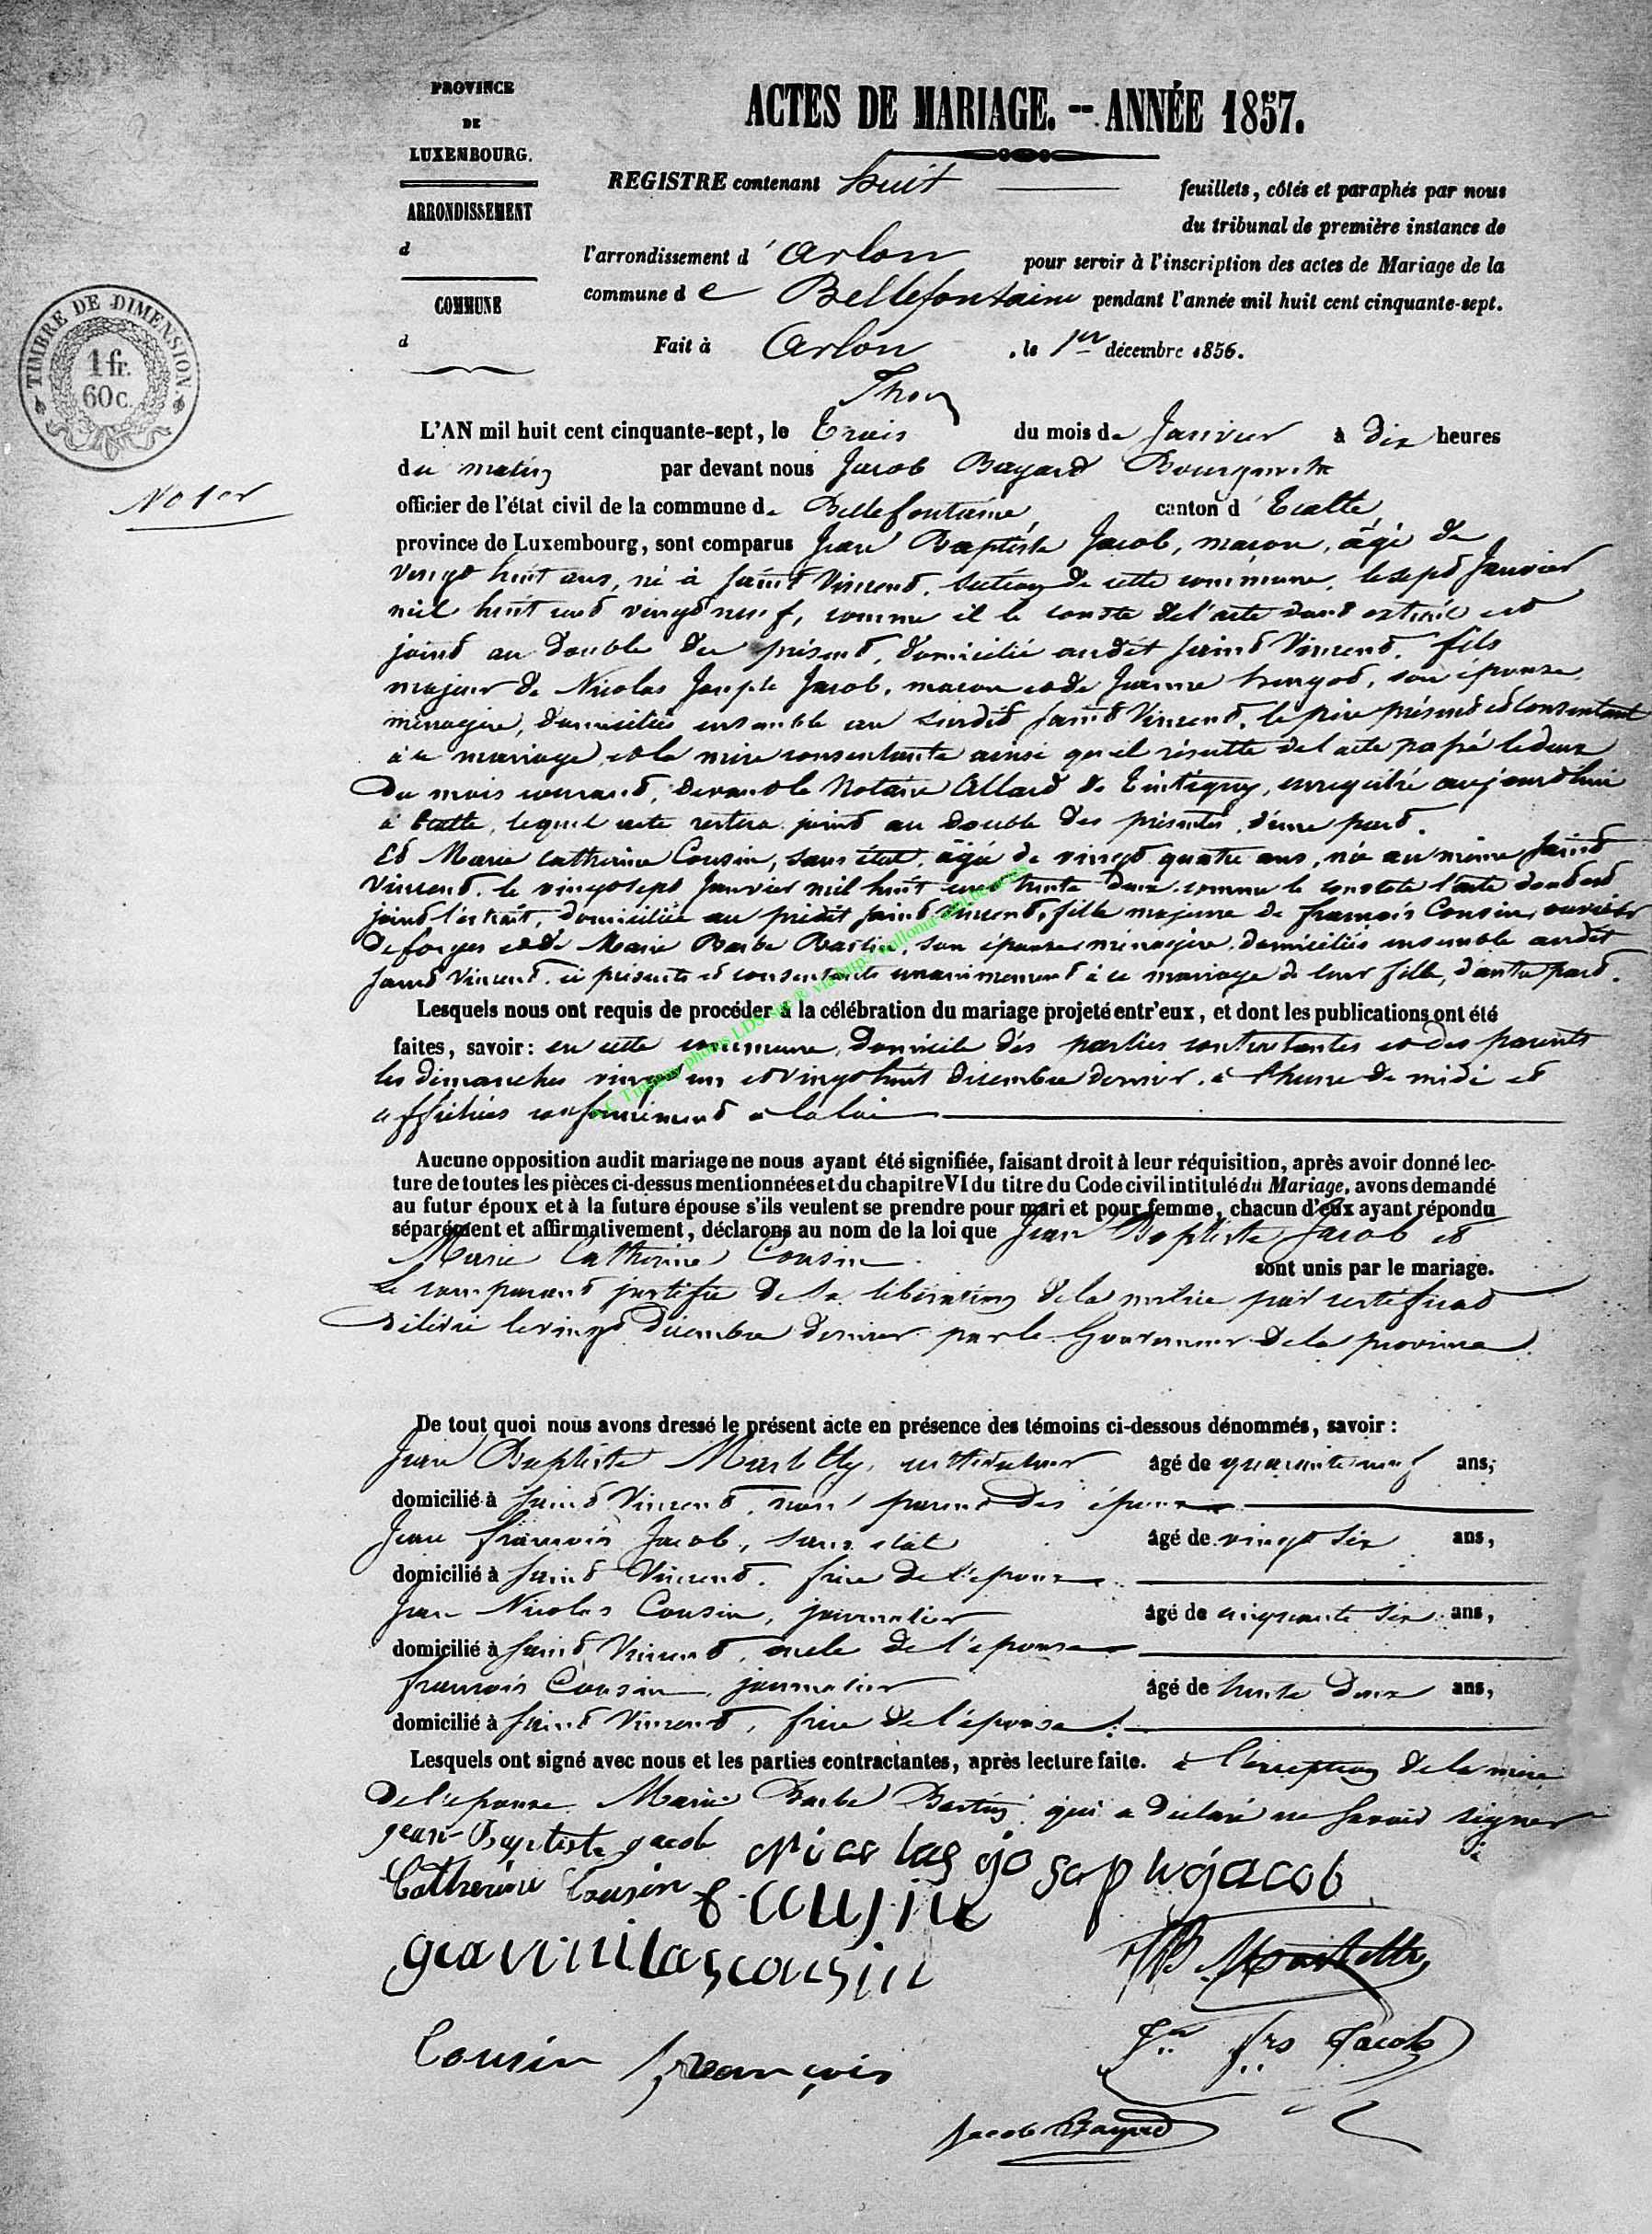 PROVINCE
DE
LUXEMBOURG.
ARRONDISSEMENT
d
COMMUNE
d
ACTES DE MARIAGE. -- ANNÉE 1857.
REGISTRE contenant huit feuillets, côtés et paraphés par nous
du tribunal de première instance de
l'arrondissement d'Arlon pour servir à l'inscription des actes de Mariage de la
commune de Bellefontaine pendant l'année mil huit cent cinquante-sept.
Fait à Arlon, le 1er décembre 1856.
TIMBRE DE DIMENSION.
1 fr.
60 c.
No 1er
L'AN mil huit cent cinquante-sept, le Trois du mois de Janvier à dix heures
du matin par devant nous Jacob Bayard Bourgmestre
officier de l'état civil de la commune de Bellefontaine canton d'Etalle
province de Luxembourg, sont comparus Jean Baptiste Jacob, macon, âgé de
vingt huit ans, né à Saint Vincent, section de cette commune, le sept Janvier
mil huit cent vingt neuf, comme il le conste de l'acte dont extrait est
joint au double du présent, domicilié audit Saint Vincent, fils
majeur de Nicolas Joseph Jacob, macon et de Jeanne, son épouse,
ménagère, domiciliés ensemble au susdit Saint Vincent, le père présent et consentant
à ce mariage, et la mère consentante ainsi qu'il résulte de l'acte passé le deux
du mois courant, devant le Notaire Allard de Tintigny, enregistré aujourd'hui
à Etalle, lequel acte restera joint au double des présentes, d'une part.
Et Marie Catherine Cousin, sans état, âgée de vingt quatre ans, née au même Saint
Vincent, le vingt sept Janvier mil huit cent trente deux comme le constate l'acte dont est
joint l'extrait, domiciliée au prédit Saint Vincent, fille majeure de françois Cousin, ouvrier
de forges et de Marie Barbe Bastin, son épouse ménagère, domiciliés ensemble audit
Saint Vincent, ici présents et consentants unanimement à ce mariage de leur fille, d'autre part.
A.C Tintigny photos LDS site R via http://wallonia-asbl.be/actes
Lesquels nous ont requis de procéder à la célébration du mariage projeté entr'eux, et dont les publications ont été
faites, savoir: en cette commune, domicile des parties contractantes et des parents
les dimanches vingt un et vingt huit décembre dernier, à l'heure de midi et
affichées conformément à la loi
Aucune opposition audit mariage ne nous ayant été signifiée, faisant droit à leur réquisition, après avoir donné lec-
ture de toutes les pièces ci-dessus mentionnées et du chapitre VI du titre du Code civil intitulé du Mariage, avons demandé
au futur époux et à la future épouse s'ils veulent se prendre pour mari et pour femme, chacun d'eux ayant répondu
séparément et affirmativement, déclarons au nom de la loi que Jean Baptiste Jacob et
Marie Catherine Cousin sont unis par le mariage.
Le comparant justifie de sa libération de la milice par certificat
délivré le vingt décembre dernier par le Gouverneur de la province.
De tout quoi nous avons dressé le présent acte en présence des témoins ci-dessous dénommés, savoir:
Jean Baptiste, instituteur âgé de quarante neuf ans;
domicilié à Saint Vincent, non parent des époux
Jean françois Jacob, sans état âgé de vingt six ans,
domicilié à Saint Vincent, frère de l'époux
Jean Nicolas Cousin, journalier âgé de cinquante six ans,
domicilié à Saint Vincent, oncle de l'épouse
françois Cousin, journalier âgé de trente deux ans,
domicilié à Saint Vincent, frère de l'épouse.
Lesquels ont signé avec nous et les parties contractantes, après lecture faite. à l'exception de la mère
de l'épouse Marie Barbe Bastin qui a déclaré ne savoir signer
jean Baptiste jacob Nicolas joseph jacob
Catherine Cousin f cousin
jeannicolascousin
Cousin françois Jn frs Jacob
Jacob Bayard